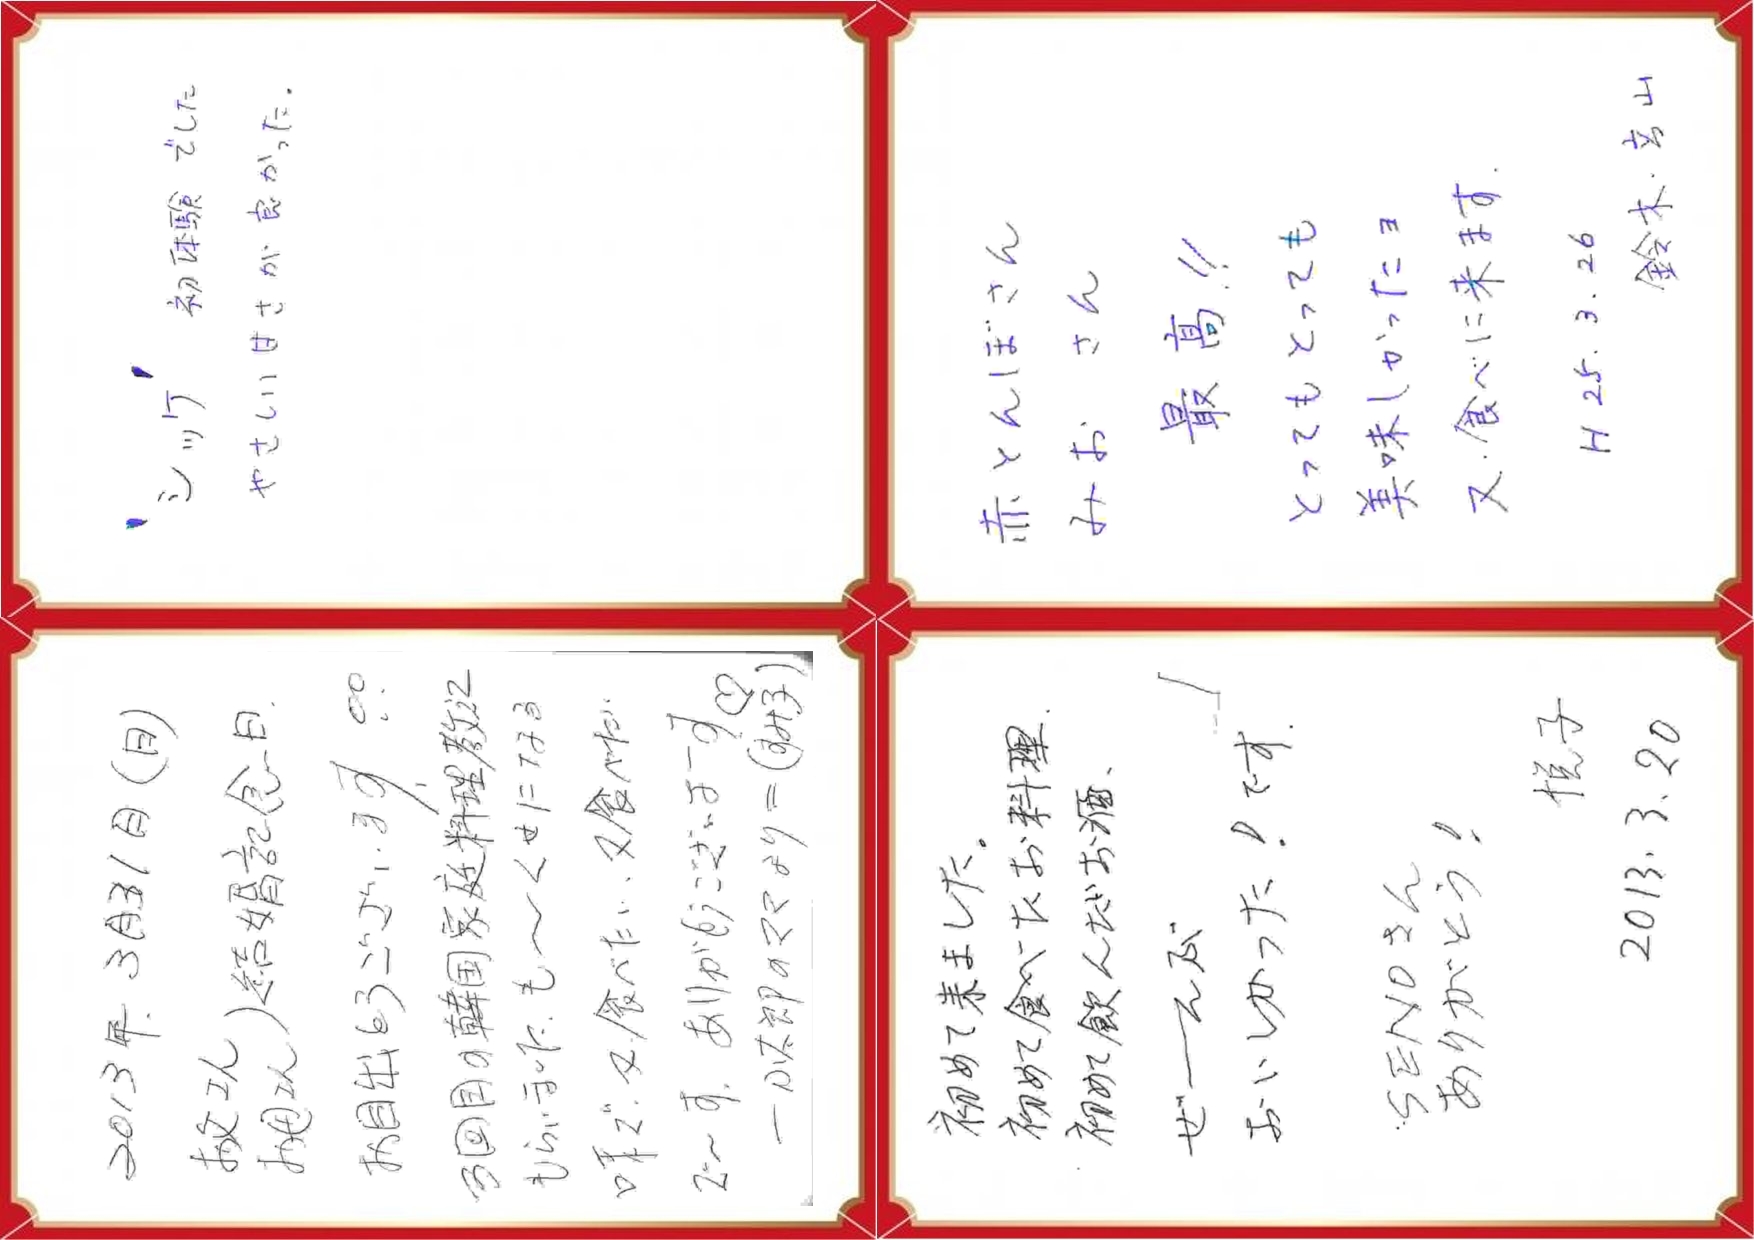 "シッケ" 初体験でした
やさしい甘さが良かった.
赤とんぼさん
みお さん
最高!!
とってもとっても
美味しかったヨ
又、食べに来ます.
H25.3.26
鈴木.玄山
2013年.3月31日(日)
結婚記念日.
お目出とうございます
3回目の韓国家庭料理教江
もらいました.も〜くせになる
味で.又食べたい.又食べたい
で〜す.ありがとうございま〜す♡
初めて来ました。
初めて食べたお料理.
初めて飲んだお酒、
ぜーーんぶ
おいしかった!です.
SENOさん
ありがとう!
悦子
2013.3.20